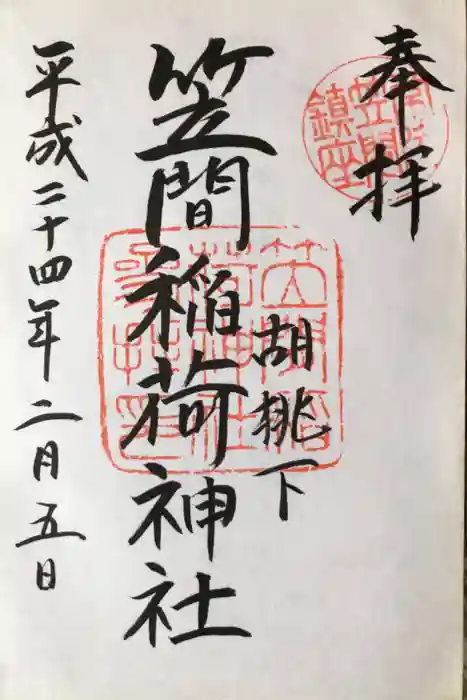 奉拝
胡桃下
笠間稲荷神社
平成二十四年二月五日